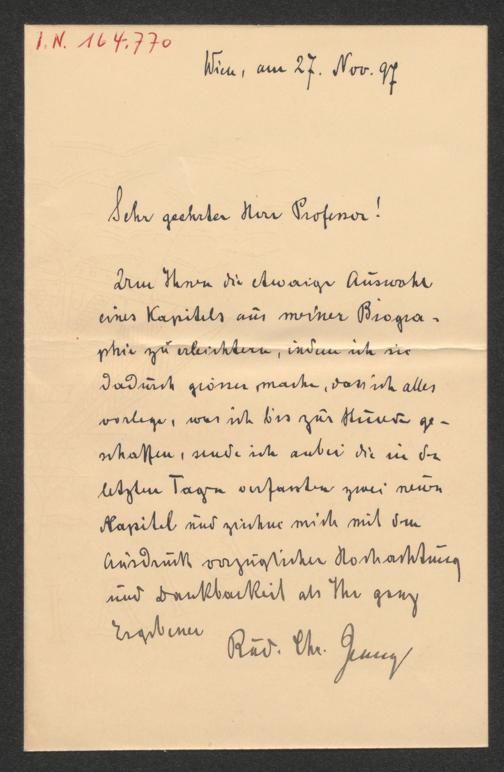 I.N. 164.770
Wien, am 27. Nov. 97
Sehr geehrter Herr Professor!
Um Ihnen die etwaige Auswahl
eines Kapitels aus meiner Biogra-
phie zu erleichtern, indem ich sie
dadurch grösser mache, dass ich alles
vorlege, was ich bis zur Stunde ge-
schaffen, sende ich anbei die in den
letzten Tagen verfassten zwei neuen
Kapitel und zeichne mich mit dem
Ausdruck vorzüglicher Hochachtung
und Dankbarkeit als Ihr ganz
Ergebener
Rud. Chr. Jenny